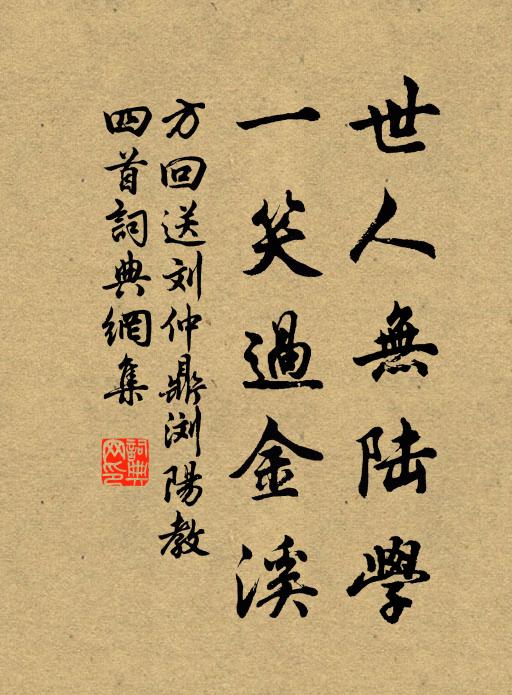 世人無陆學
一笑過金溪
方回送刘仲鼎浏陽教
四首詞典網集
詞典网印